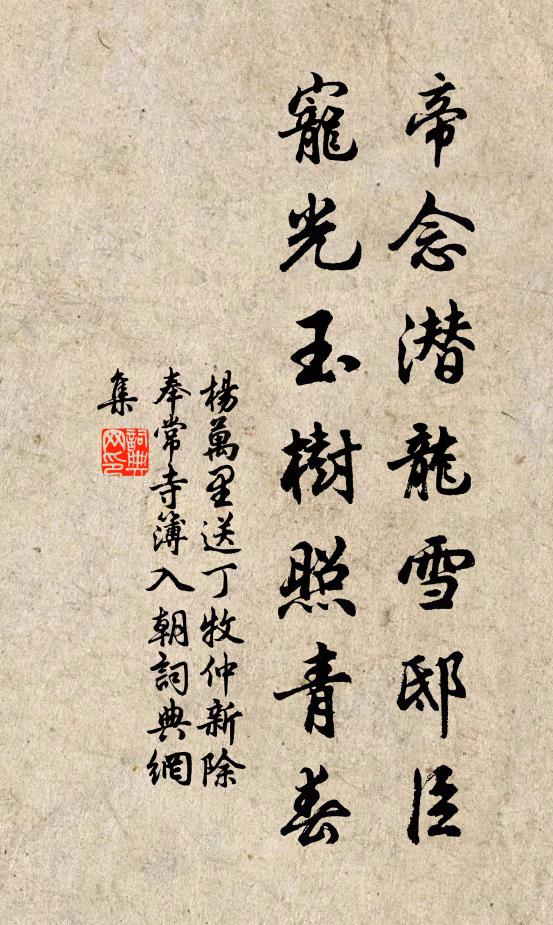 帝念潜龍雪邸臣
寵光玉樹照青春
楊萬里送丁牧仲新除
奉常寺簿入朝詞典網
集
詞典網印